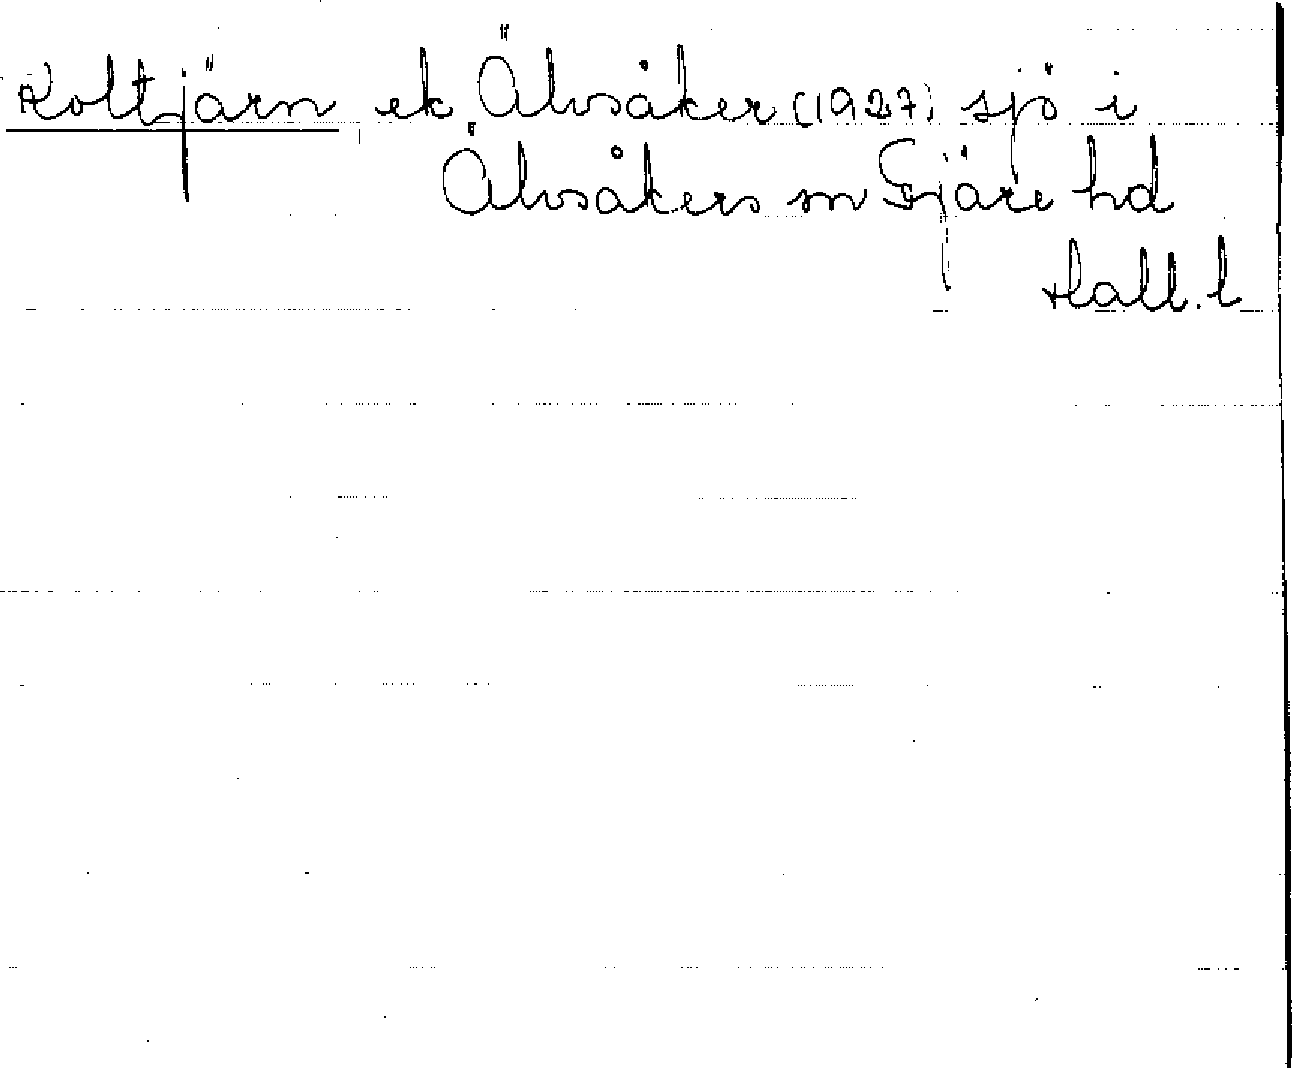 Koltjärn ek Älvsåker (1927) sjö i
Älvsåkers sn Fjäre hd
Hall. l